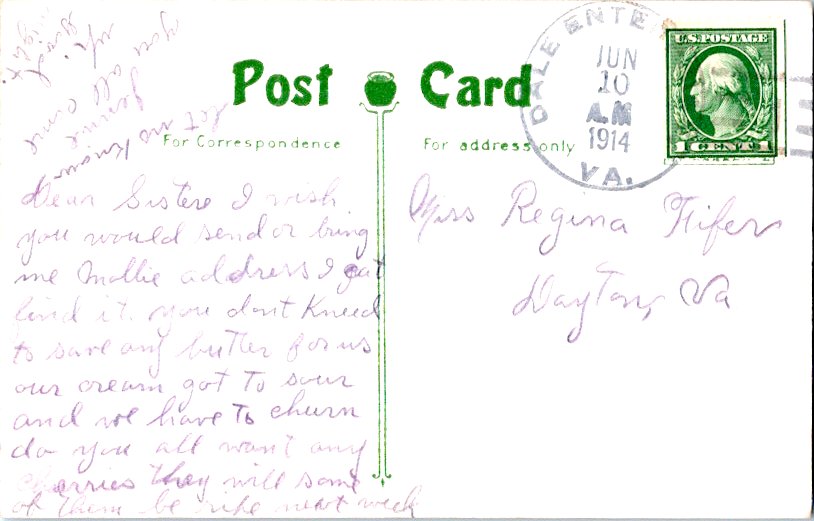 Post Card
For Correspondence
For address only
DALE ENTER
JUN
10
A.M
1914
VA.
U.S. POSTAGE
1 CENT 1
Dear Sistere I wish
you would send or bring
me Mollie address I cat
find it. you dont Kneed
to save any butter for us
our cream got to sour
and we have to churn
do you all want any
cherries they will some
of them be ripe next week
let me know
Jennie
you all come
up
good
night
Miss Regina Flifer
Dayton, Va